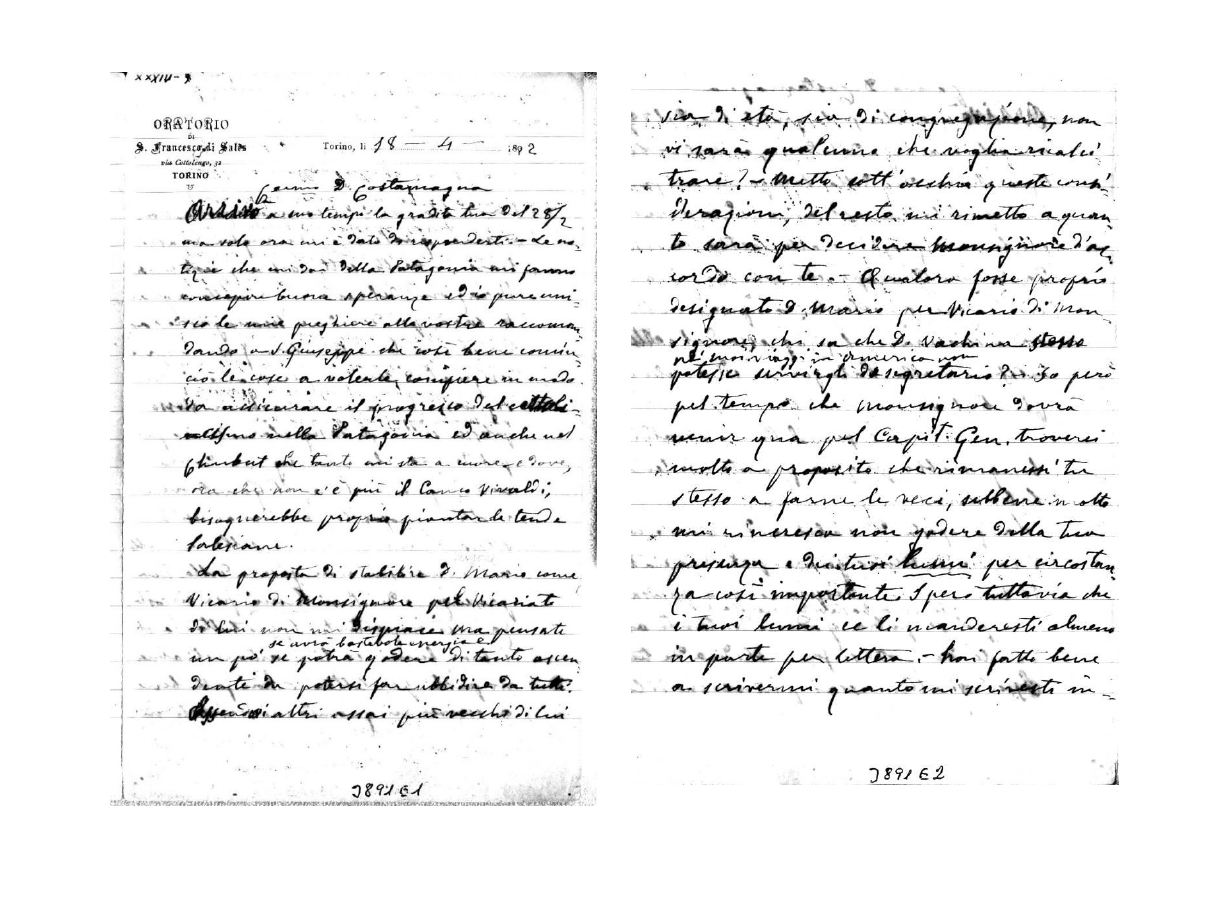 XXXIV-9
ORATORIO
DI
S. Francesco di Sales
via Cottolengo, 32
TORINO
Torino, li 18 - 4 - 1892
Car.mo D. Costamagna
Arrivò a suo tempo la gradita tua del 28/2
ma solo ora mi è dato di risponderti. - Le no-
tizie che mi dai della Patagonia mi fanno
concepire buone speranze ed io pure uni-
sco le mie preghiere alle vostre raccoman
dando a S. Giuseppe che così bene comin
ciò le cose a volerle compiere in modo
da assicurare il progresso del cattoli-
cismo nella Patagonia ed anche nel
Chubut che tanto mi sta a cuore e dove,
ora che non c'è più il Can.co Vivaldi,
bisognerebbe proprio piantar le tende
Salesiane.
La proposta di stabilire D. Mario come
Vicario di Monsignore pel Vicariato
di lui non mi dispiace ma pensate
se avrà bastevole energia e
un po' se potrà godere di tanto ascen
dente da potersi far ubbidire da tutti.
Essendovi altri assai più vecchi di lui
J891E1
sia di età, sia di congregazione, non
vi sarà qualcuno che voglia ricalci
trare? - Metto sott'occhio queste consi
derazioni, del resto mi rimetto a quan
to sarà per decidere Monsignore d'ac
cordo con te. - Qualora fosse proprio
designato D. Mario per Vicario di Mon
signore, chi sa che D. Vacchina stesso
ne' suoi viaggi in America non
potesse servirgli da segretario? - Io però
pel tempo che Monsignore dovrà
venir qua pel Capit. Gen. troverei
molto a proposito che rimanessi tu
stesso a farne le veci, sebbene molto
mi rincresca non godere della tua
presenza e dei tuoi lumi per circostan
za così importante. Spero tuttavia che
i tuoi lumi ce li manderesti almeno
in parte per lettera. - Hai fatto bene
a scrivermi quanto mi scrivesti in-
J891E2